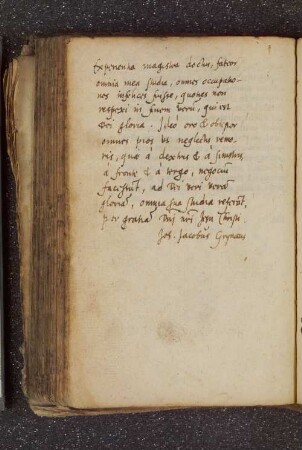 Experientia magistra doctus, fateor
omnia mea studia, omnes occupatio-
nes infelices fuisse, quoties non
respexi in finem verū, qui est
Dei gloria. Ideo oro & obtestor
omnes pios ut neglectis remo-
ris, quæ à dextris & à sinistris,
à fronte & à tergo, negociū
facessunt, ad Dei veri verā
gloriā, omnia sua studia referāt,
per gratiā Dni nri Jesu Christi.
Joh. Jacobus Grynæus